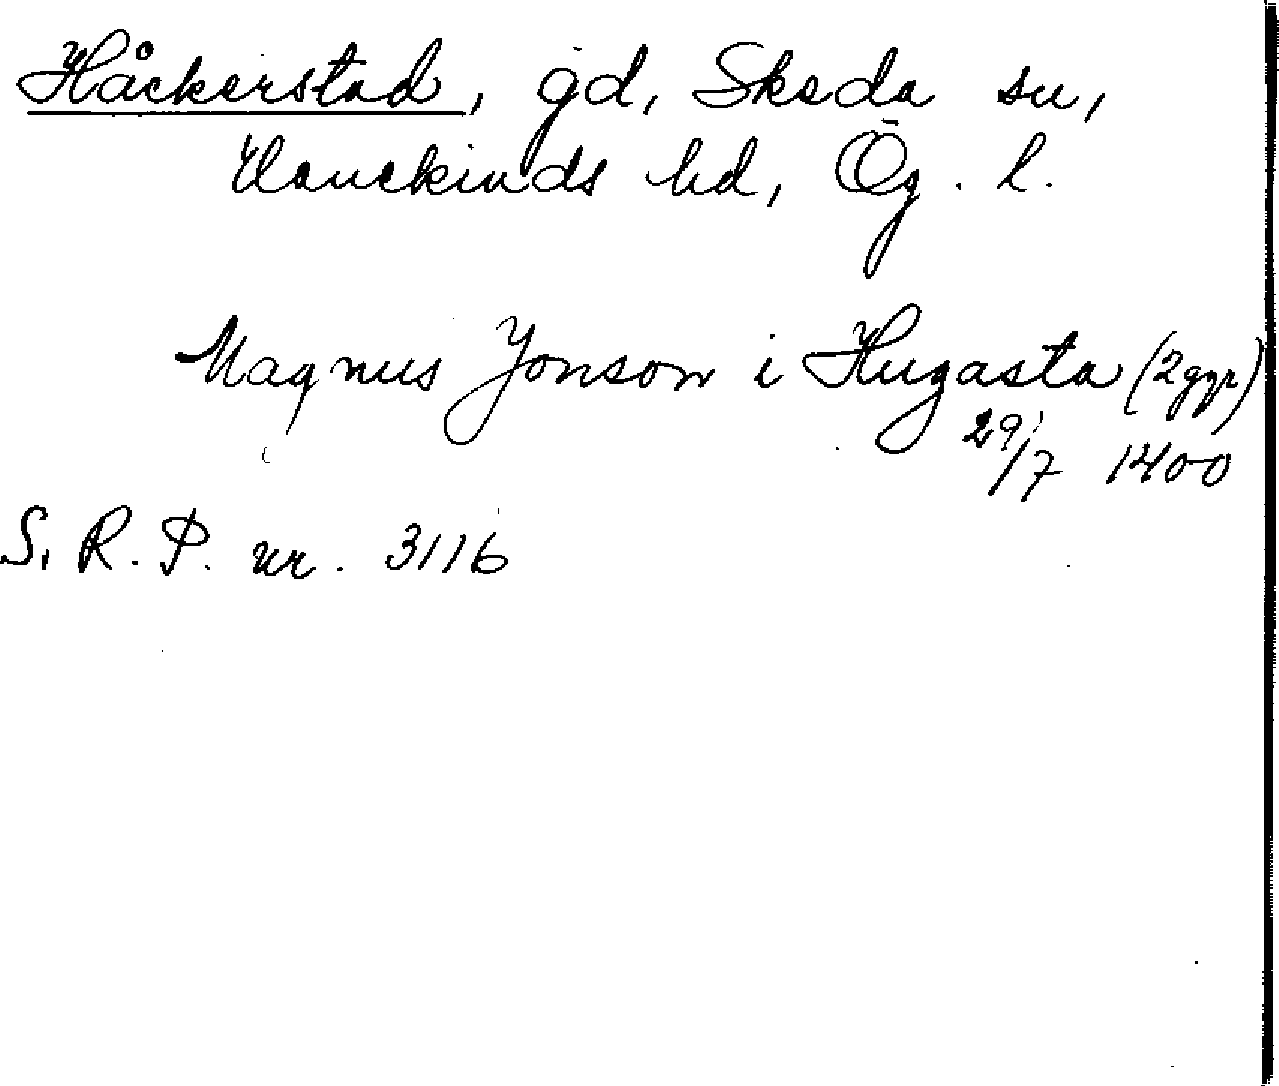 Håckerstad, gd, Skeda sn,
Hanekinds hd, Ög. l.
Magnus Jonson i Hugasta (2 ggr)
29/7 1400
S. R. P. nr. 3116